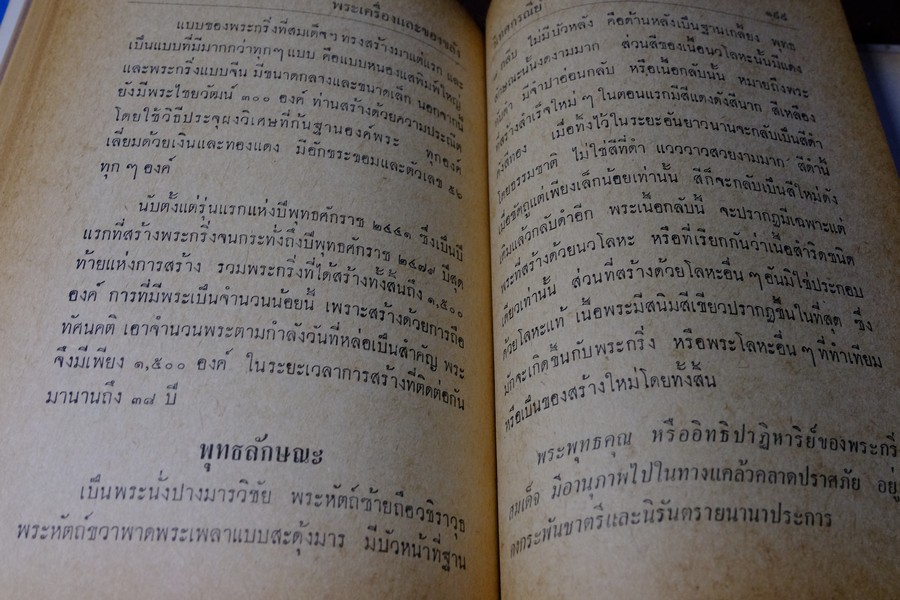 พระเครื่องและของขลัง
แบบของพระกริ่งที่สมเด็จฯ ทรงสร้างมาแต่แรก และ
เป็นแบบที่มีมากกว่าทุกๆ แบบ คือแบบหนองแสพิมพ์ใหญ่
และพระกริ่งแบบจีน มีขนาดกลางและขนาดเล็ก นอกจากนี้
ยังมีพระไชยวัฒน์ ๓๐๐ องค์ ท่านสร้างด้วยความประณีต
โดยใช้วิธีประจุผงวิเศษที่ก้นฐานองค์พระ ทุกองค์
เลี่ยมด้วยเงินและทองแดง มีอักขระขอมและตัวเลข ๕๖
ทุก ๆ องค์
นับตั้งแต่รุ่นแรกแห่งปีพุทธศักราช ๒๔๔๑ ซึ่งเป็นปี
แรกที่สร้างพระกริ่งจนกระทั่งถึงปีพุทธศักราช ๒๔๗๙ ปีสุด
ท้ายแห่งการสร้าง รวมพระกริ่งที่ได้สร้างทั้งสิ้นถึง ๑,๕๐๐
องค์ การที่มีพระเป็นจำนวนน้อยนี้ เพราะสร้างด้วยการถือ
ทัศนคติ เอาจำนวนพระตามกำลังวันที่หล่อเป็นสำคัญ พระ
จึงมีเพียง ๑,๕๐๐ องค์ ในระยะเวลาการสร้างที่ติดต่อกัน
มานานถึง ๓๘ ปี
พุทธลักษณะ
เป็นพระนั่งปางมารวิชัย พระหัตถ์ซ้ายถือวชิราวุธ
พระหัตถ์ขวาพาดพระเพลาแบบสะดุ้งมาร มีบัวหน้าที่ฐาน
๑๕๕
กลีบ ไม่มีบัวหลัง คือด้านหลังเป็นฐานเกลี้ยง พุทธ
ลักษณะนั้นงดงามมาก ส่วนสีของเนื้อนวโลหะนั้นมีแดง
มีจำปาออนกลับ หรือเนื้อกลับนั้น หมายถึงพระ
ที่สร้างสำเร็จใหม่ ๆ ในตอนแรกมีสีแดงดังสีนาก สีเหลือง
ดังสีทอง เมื่อทิ้งไว้ในระยะอันยาวนานจะกลับเป็นสีดำ
โดยธรรมชาติ ไม่ใช่สีที่ดำ แวววาวสวยงามมาก สีดำนี้
เมื่อขัดถูแต่เพียงเล็กน้อยเท่านั้น สีก็จะกลับเป็นสีใหม่ดัง
เดิมแล้วกลับดำอีก พระเนื้อกลับนี้ จะปรากฏมีเฉพาะแต่
พระที่สร้างด้วยนวโลหะ หรือที่เรียกกันว่าเนื้อสำริดชนิด
เดียวเท่านั้น ส่วนที่สร้างด้วยโลหะอื่น ๆ อันมิใช่ประกอบ
ด้วยโลหะแท้ เนื้อพระมีสนิมสีเขียวปรากฏขึ้นในที่สุด ซึ่ง
มักจะเกิดขึ้นกับพระกริ่ง หรือพระโลหะอื่น ๆ ที่ทำเทียม
หรือเป็นของสร้างใหม่โดยทั้งสิ้น
พระพุทธคุณ หรืออิทธิปาฏิหาริย์ของพระกริ่ง
สมเด็จ มีอานุภาพไปในทางแคล้วคลาดปราศภัย อยู่
คงกระพันชาตรีและนิรันตรายนานาประการ